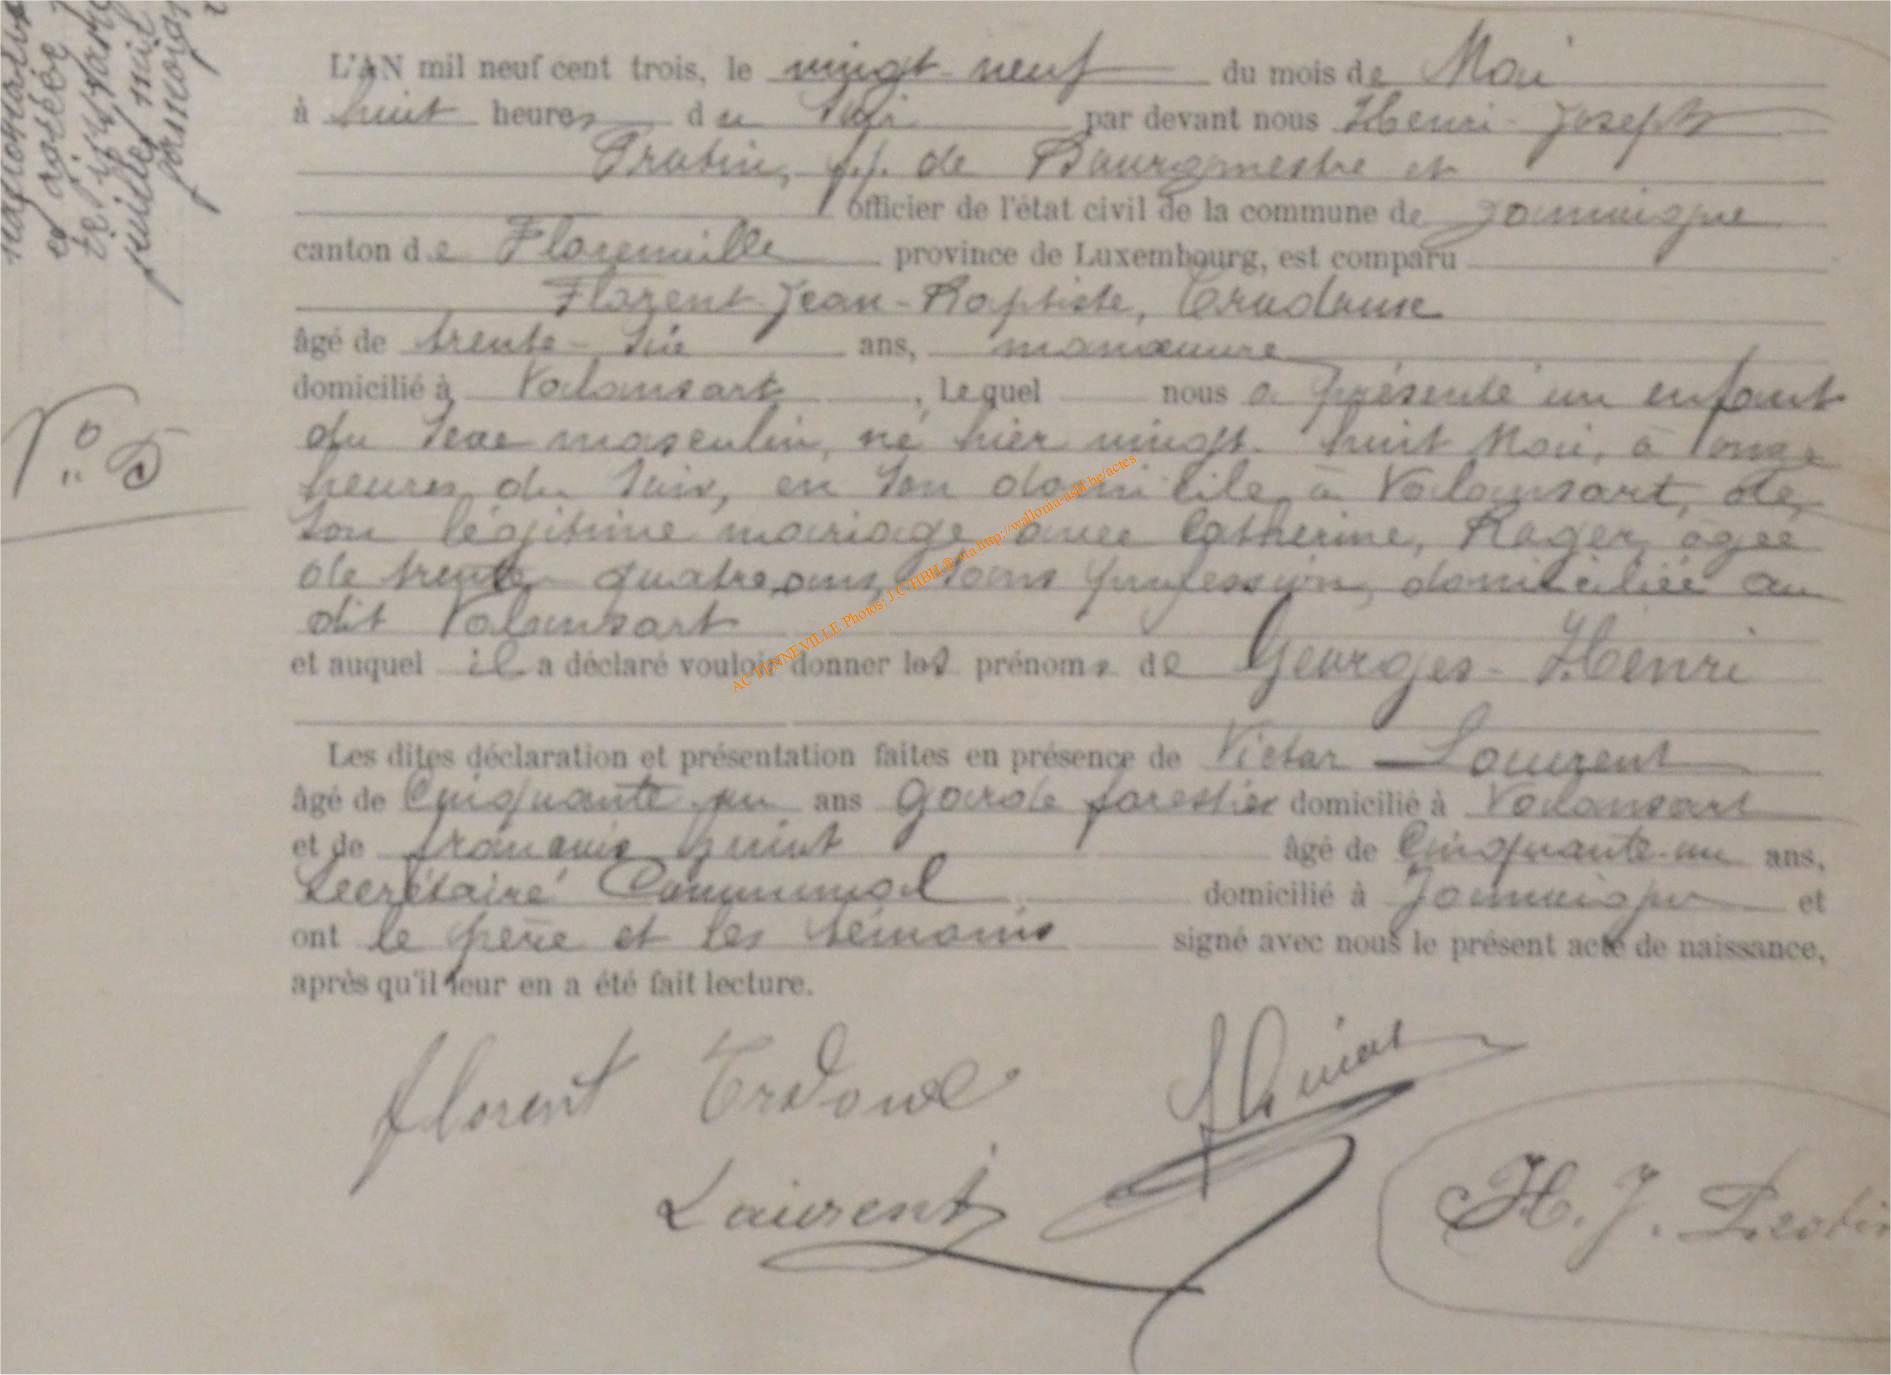 L'AN mil neuf cent trois, le vingt-neuf du mois de Mai
à huit heures du Soir par devant nous Henri-Joseph
Protin, f.f. de Bourgmestre et
officier de l'état civil de la commune de Jamoigne
canton de Florenville province de Luxembourg, est comparu
Florent-Jean-Baptiste,
âgé de trente-Six ans, manœuvre
domicilié à Valansart, Lequel nous a présenté un enfant
du Sexe masculin, né hier vingt-huit Mai, à onze
heures du Soir, en Son domicile, à Valansart, de
Son légitime mariage avec Catherine, Roger, agée
de trente quatre ans, Sans profession, domiciliée au
dit Valansart
et auquel il a déclaré vouloir donner les prénoms de Georges-Henri
N° 5
Les dites déclaration et présentation faites en présence de Victor Laurent
âgé de Cinquante-un ans Garde forestier domicilié à Valansart
et de françois Guiot âgé de Cinquante-un ans,
Secrétaire Communal domicilié à Jamoigne et
ont le père et les témoins signé avec nous le présent acte de naissance,
après qu'il leur en a été fait lecture.
florent
Laurent
H. J. Protin
AC TINNEVILLE Photos: J.C HBH.® via http://wallonia-asbl.be/actes